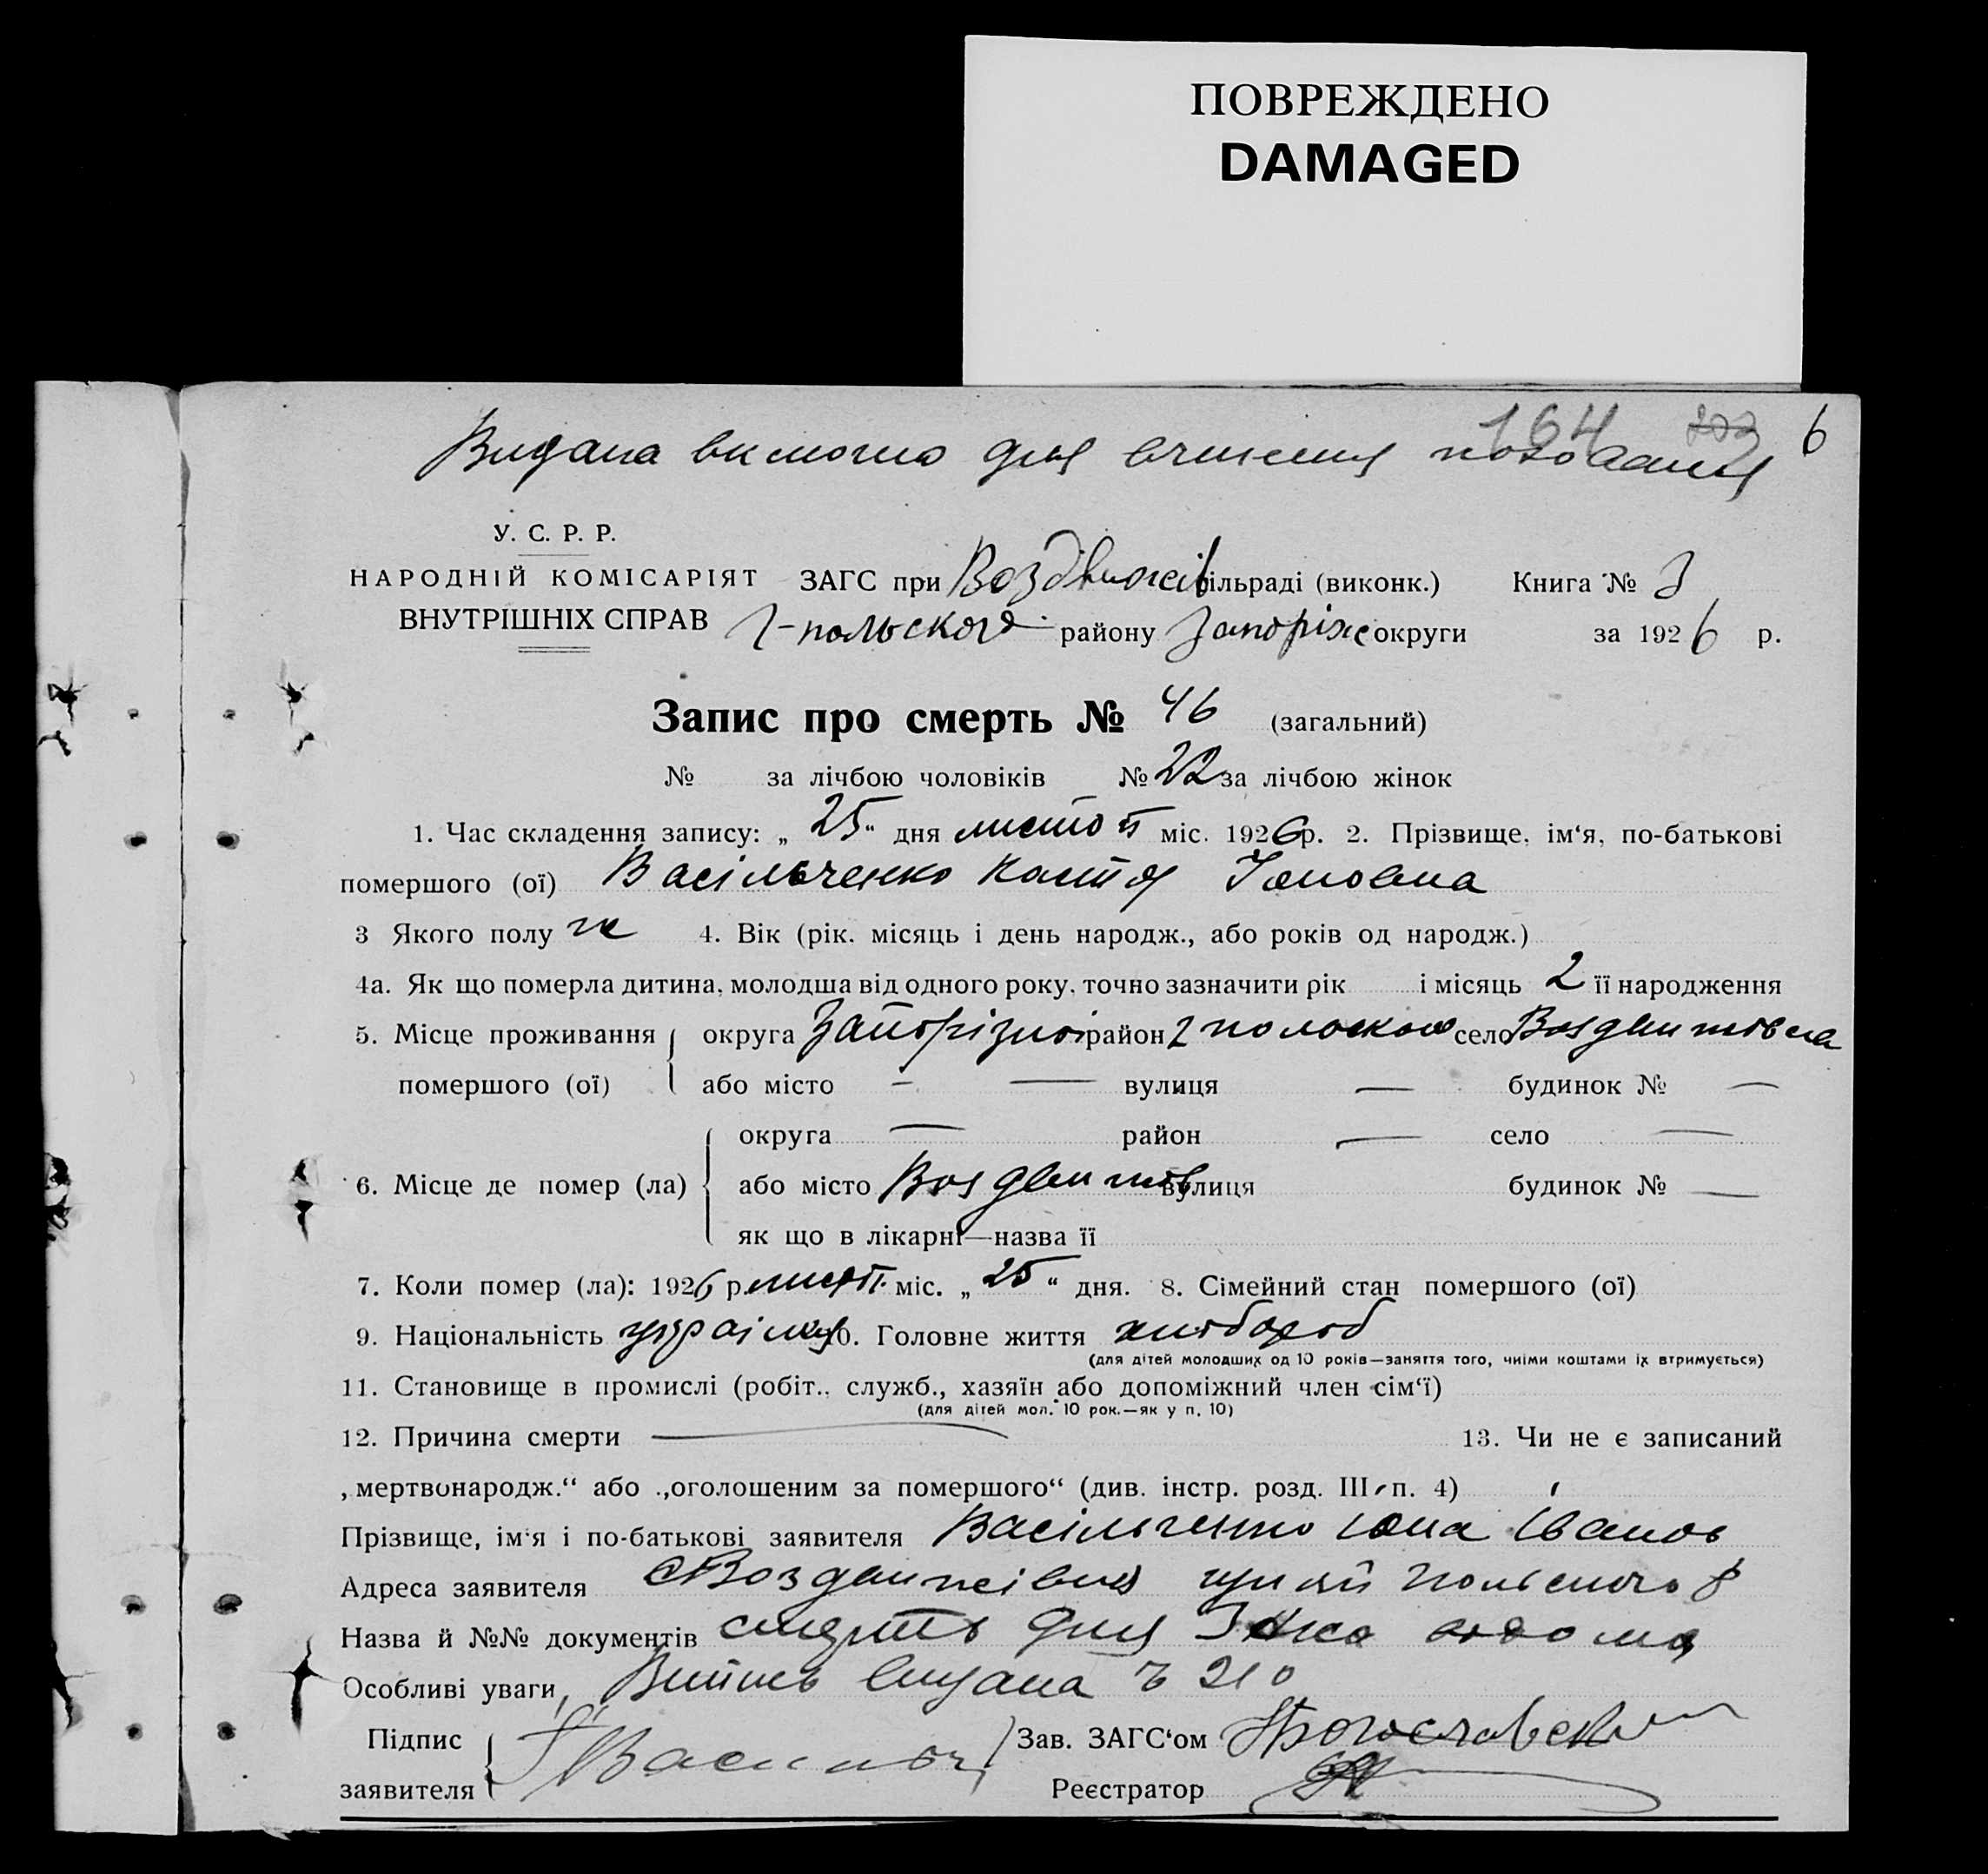 ПОВРЕЖДЕНО
DAMAGED
164 203 6
Видана для поховання
У. С. Р. Р.
НАРОДНІЙ КОМІСАРІЯТ ЗАГС при Воздвижів сільраді (виконк.) Книга № 3
ВНУТРІШНІХ СПРАВ Г-польского району Запоріж округи за 1926 р.
Запис про смерть № 46 (загальний)
№ за лічбою чоловіків № 22 за лічбою жінок
1. Час складення запису: „ 25 “ дня листоп міс. 1926 р. 2. Прізвище, ім‘я, по-батькові
помершого (ої) Васільченко Настя Іоновна
3 Якого полу ж 4. Вік (рік. місяць і день народж., або років од народж.)
4а. Як що померла дитина, молодша від одного року, точно зазначити рік і місяць 2 її народження
5. Місце проживання округа район село
помершого (ої) або місто — — вулиця — будинок № —
округа — район — село —
6. Місце де помер (ла) або місто вулиця будинок № —
як що в лікарні—назва її
7. Коли помер (ла): 1926 р. лист. міс. „ 25 “ дня. 8. Сімейний стан помершого (ої)
9. Національність 10. Головне життя хлібороб
(для дітей молодших од 10 років—заняття того, чиїми коштами їх втримується)
11. Становище в промислі (робіт., служб., хазяїн або допоміжний член сім‘ї)
(для дітей мол. 10 рок.—як у п. 10)
12. Причина смерти — 13. Чи не є записаний
„мертвонародж.“ або „оголошеним за помершого“ (див. інстр. розд. III, п. 4)
Прізвище, ім‘я і по-батькові заявителя Васільченко Іона Іванов
Адреса заявителя с Воздвижівка польского р
Назва й №№ документів смерть
Особливі уваги Випись видана 210
Підпис Зав. ЗАГС‘ом
заявителя Реєстратор